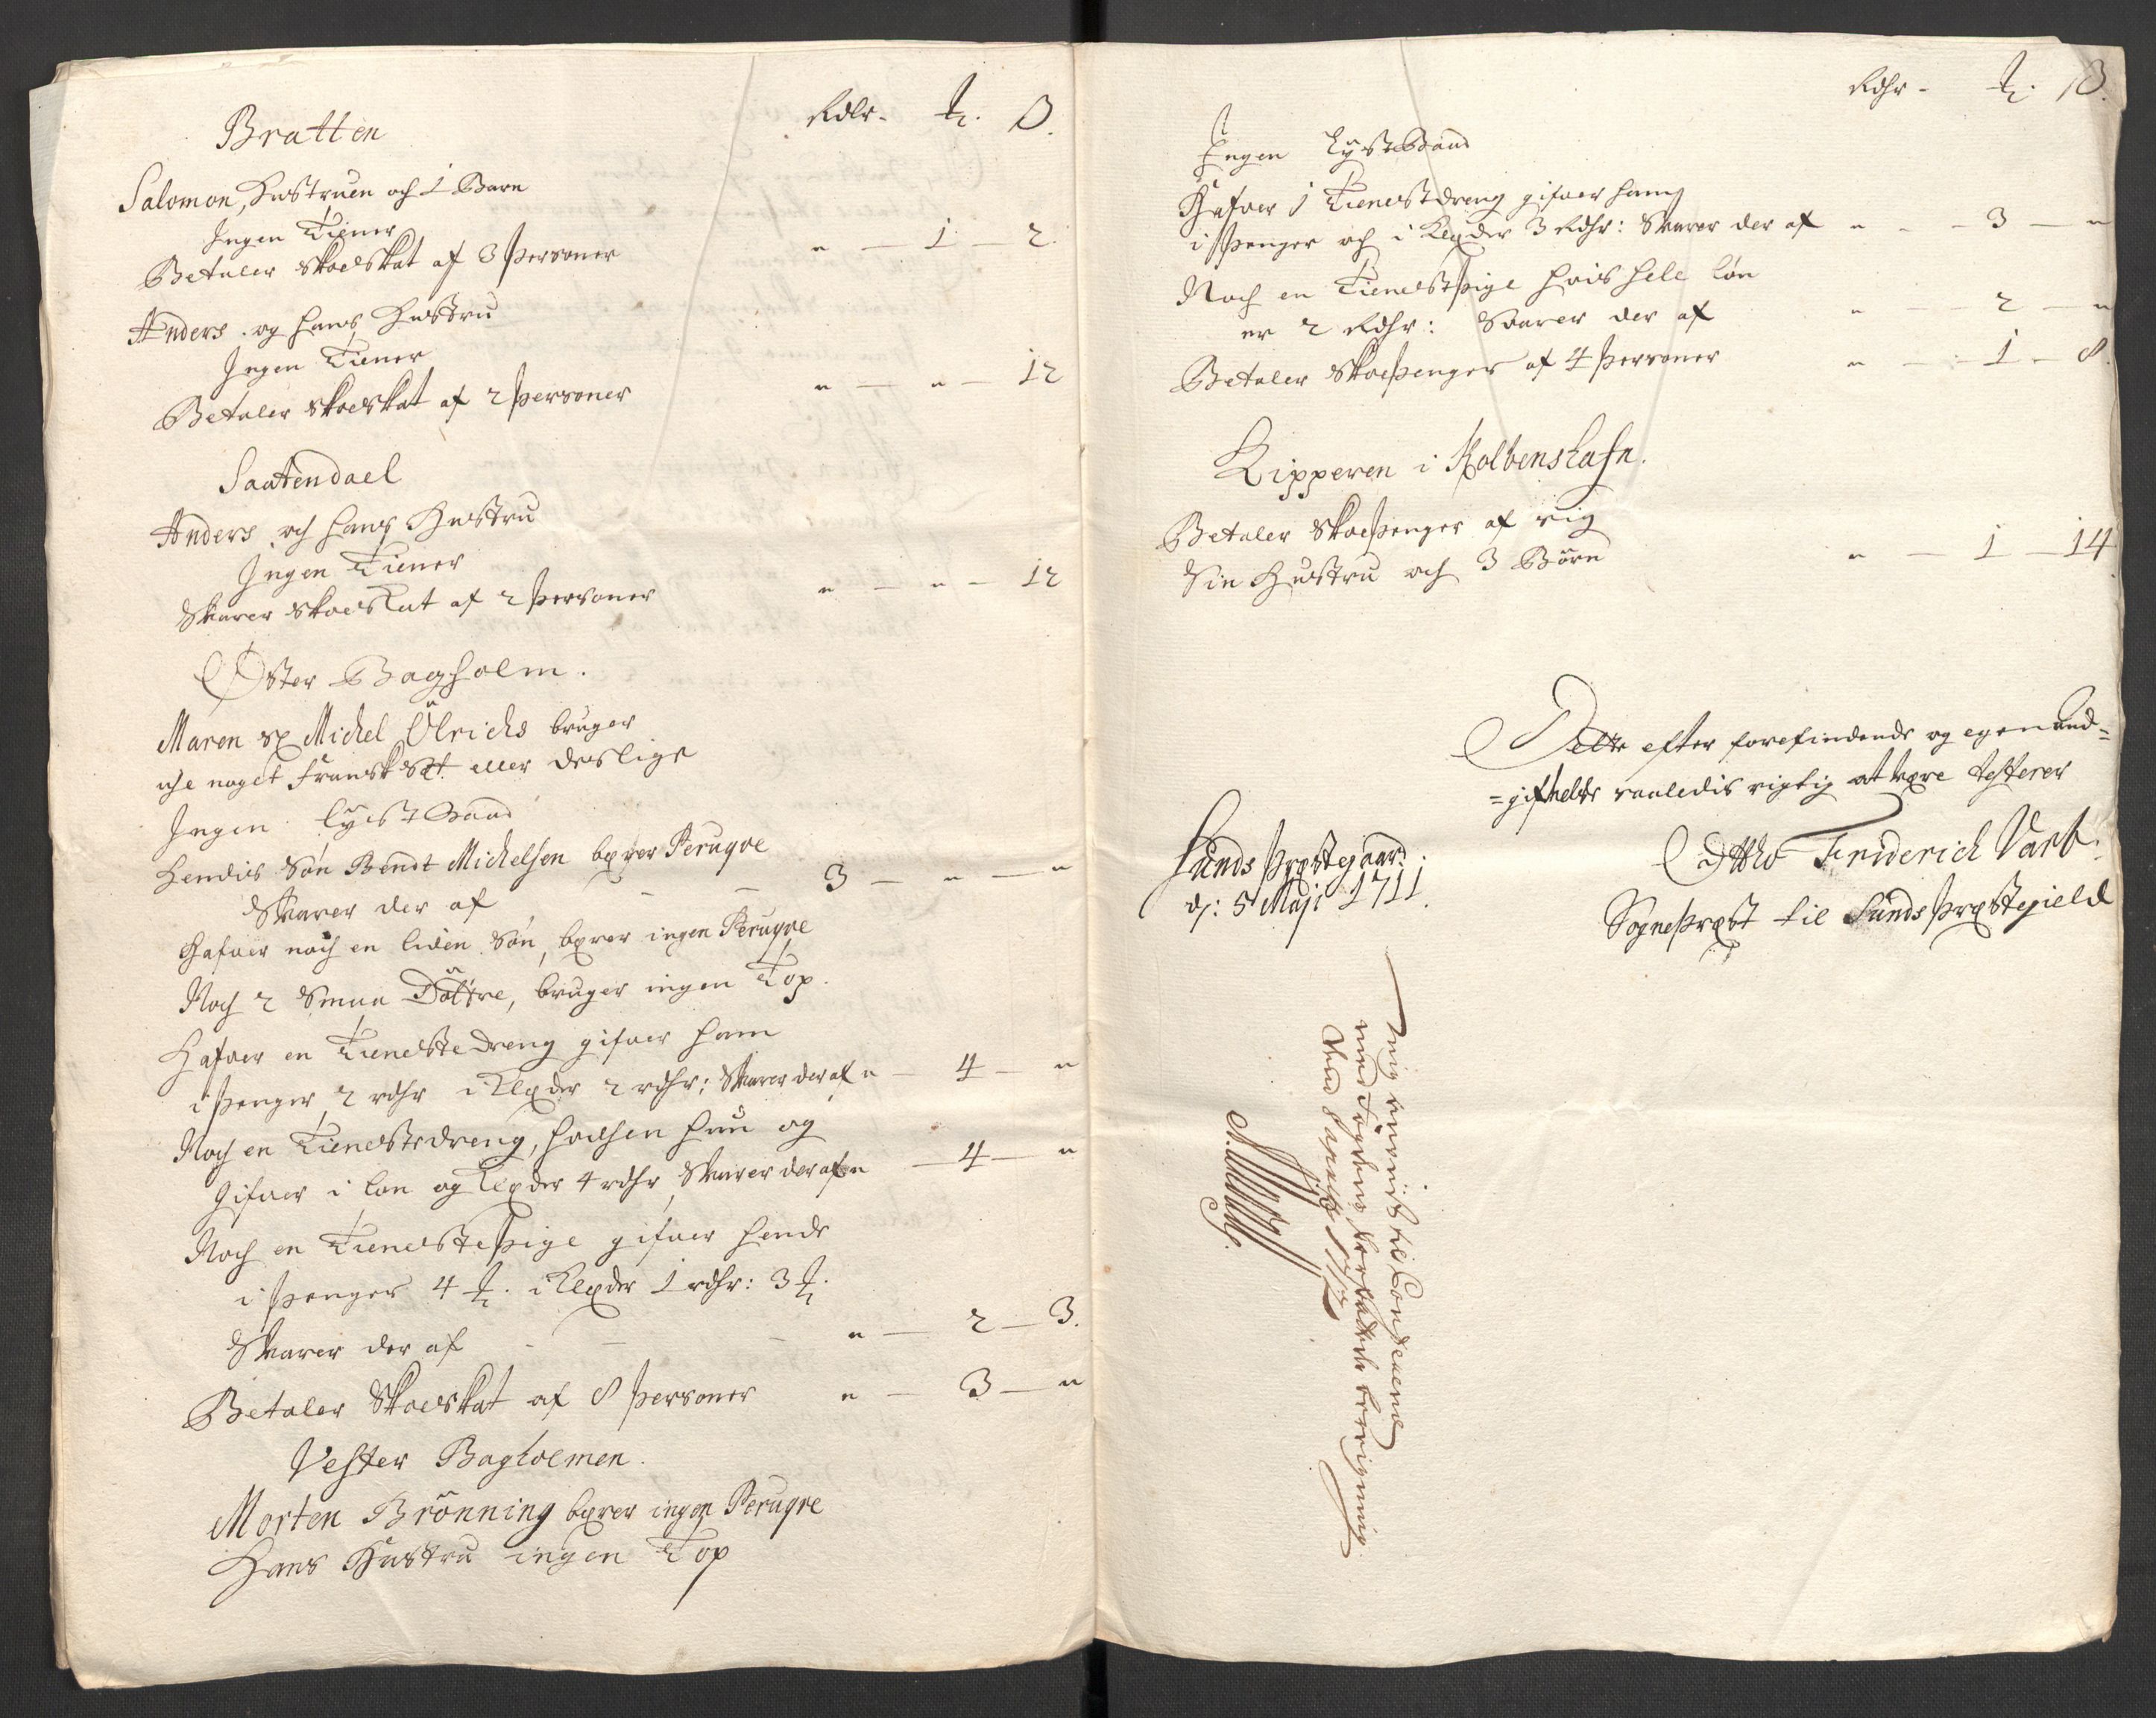 Rdlr - ℔. β.
Bratten
Salomon, Hustruen och 1 Barn
Ingen Tiener
Betaler Skoeskat af 3 Personer " — 1 — 2.
Anders og hans Hustru
Ingen Tiener
Betaler Skoeskat af 2 Personer " — " — 12
Saatendael
Anders och hans Hustru
Ingen Tiener
Svarer Skoeskat af 2 Personer " — " — 12
Øster Bagholm.
Maren Sl Michel Ulrichs bruger
iche noget Fransk Sæt eller deslige
Ingen Lyst Vaad
Hendis Søn Bendt Michelsen bærer Peruqve
Svarer der af — — 3 — " — "
Hafuer noch en liden Søn, bærer ingen Peruqve
Noch 2 Smaa Döttre, bruger ingen Top.
Hafuer en Tieneste Dreng gifuer ham
i Penger 2 rdhr i Klæder 2 rdhr: Svarer der af " — 4 — "
Noch en Tienestedreng, hvilchen hun og
Gifuer i løn og Klæder 4 rdhr, Svarer der af " — 4 — "
Noch en Tieneste Pige gifuer hende
i Penger 4 ℔. i Klæder 1 rdhr: 3 ℔.
Svarer der af - — — " — 2 — 3.
Betaler Skoeskat af 8 Personer " — 3 — "
Vester Bagholmen.
Morten Brönning bærer ingen Peruqve
Hans Hustru ingen Top
Rdhr - ℔. β.
Ingen Lyst Vaad
Hafuer 1 Tienestdreng gifuer ham
i Penger och i Klæder 3 Rdhr: Svarer der af " - - 3 — "
Noch en Tienestpige hvis hele løn
er 2 Rdhr: Svarer der af " — 2 — "
Betaler Skoepenger af 4 Personer " — 1 — 8.
Kipperen i Kolbenshafn.
Betaler Skoepenger af sig
Sin Hustru och 3 Börn " — 1 — 14
Dette efter forefindende og egenænd=
=gifvelse saaledis rigtig at være testerer
Sunds Præstegaard.
d: 5 Maji 1711.
Ottho Friderich Vart.
Sognepræst til Sunds Præstegield
med Fogdens
1712